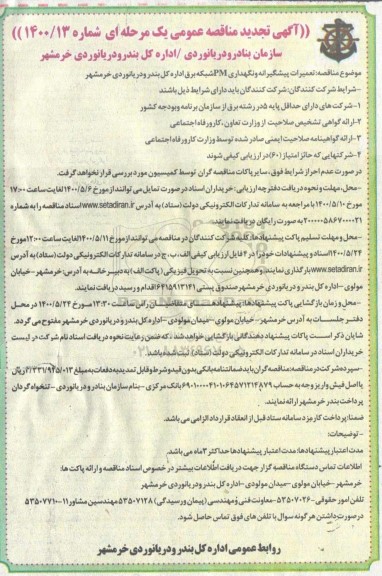 ((آگهی تجدید مناقصه عمومی یک مرحله ای شماره ۱۴۰۰/۱۳))
سازمان بنادرودریانوردی /اداره کل بندرودریانوردی خرمشهر
موضوع مناقصه: تعمیرات پیشگیرانه ونگهداری PMشبکه برق اداره کل بندر ودریانوردی خرمشهر
-شرایط شرکت کنندگان: شرکت کنندگان باید دارای شرایط ذیل باشند
۱-شرکت های دارای حداقل پایه ۵در رشته برق از سازمان برنامه وبودجه کشور
۲-ارائه گواهی تشخیص صلاحیت از وزارت تعاون ،کارورفاه اجتماعی
۳-ارائه گواهینامه صلاحیت ایمنی صادر شده توسط وزارت کارورفاه اجتماعی
۴-شرکتهایی که حائز امتیاز (۶۰) در ارزیابی کیفی شوند
در صورت عدم احراز شرایط فوق ،سایر پاکات مناقصه گران توسط کمیسیون مورد بررسی قرار نخواهد گرفت.
-محل ،مهلت و نحوه دریافت دفترچه ارزیابی :خریداران اسناد در صورت تمایل می توانند از مورخ ۱۴۰۰/۵/۶لغایت ساعت ۱۷:۰۰
مورخ ۱۴۰۰/۵/۱۰ با مراجعه به سامانه تدارکات الکترونیکی دولت (ستاد) به آدرس www.setadiran.irاسناد مناقصه را به شماره
۲۰۰۰۰۰۵۸۶۷۰۰۰۰۲۱به صورت رایگان دریافت نمایند.
-محل و مهلت تسلیم پاکت پیشنهادها: کلیه شرکت کنندگان در مناقصه می توانند از مورخ ۱۴۰۰/۵/۱۱لغایت ساعت ۱۲:۰۰مورخ
۱۴۰۰/۵/۲۴اسناد و پیشنهادات خود را در ۴ فایل ارزیابی کیفی ،الف ،ب ،ج در سامانه تدارکات الکترونیکی دولت (ستاد) به آدرس
www.setadiran.irبارگذاری نمایند.وهمچنین نسبت به تحویل فیزیکی (پاکت الف) به دبیرخانه به آدرس: خرمشهر - خیابان
مولوی -اداره کل بندر ودریانوردی خرمشهر صندوق پستی ۶۴۱۵۹۱۳۱۴۱اقدام و رسید دریافت نمایند.
-محل و زمان بازگشایی پاکت پیشنهادها: پیشنهادهای متقاضیان راس ساعت ۱۳:۳۰مورخ ۱۴۰۰/۵/۲۴ در محل
دفتر جلسات به آدرس خرمشهر- خیابان مولوی -میدان مولودی -اداره کل بندر و دریانوردی خرمشهر مفتوح می گردد.
شایان ذکر است پاکات پیشنهاد دهندگانی بازگشایی خواهد شد ،که ضمن رعایت نحوه دریافت اسناد نام شرکت در لیست
خریداران اسناد در سامانه تدارکات الکترونیکی دولت (ستاد) ثبت شده باشد.
-سپرده شرکت در مناقصه: مناقصه گران باید ضمانتنامه بانکی بدون قید و شرط و قابل تمدید به دفعات به مبلغ
یا اصل فیش واریز وجه به حساب بانک مرکزی -بنام سازمان بنادر و دریانوردی -تنخواه گردان
پرداخت بندر خرمشهر ارائه نمایند.
ضمنا: پرداخت کارمزد سامانه ستاد قبل از انعقاد قرارداد الزامی می باشد.
-توضیحات:
مدت اعتبار پیشنهادها: مدت اعتبار پیشنهادها حداکثر ۳ماه می باشد.
اطلاعات تماس دستگاه مناقصه گزار جهت دریافت اطلاعات بیشتر در خصوص اسناد مناقصه و ارائه پاکت ها:
خرمشهر -خیابان مولوی -میدان مولودی -اداره کل بندر ودریانوردی خرمشهر
تلفن امور حقوقی ۵۳۵۰۷۰۲۶-معاونت فنی ومهندسی (پیمان ورسیدگی) ۵۳۵۰۷۱۲۸ مهندسین مشاور ۱۱-۵۳۵۰۷۷۱۰
در صورت داشتن هر گونه سوال با تلفن های فوق تماس حاصل شود.
روابط عمومی اداره کل بندر ودریانوردی خرمشهر